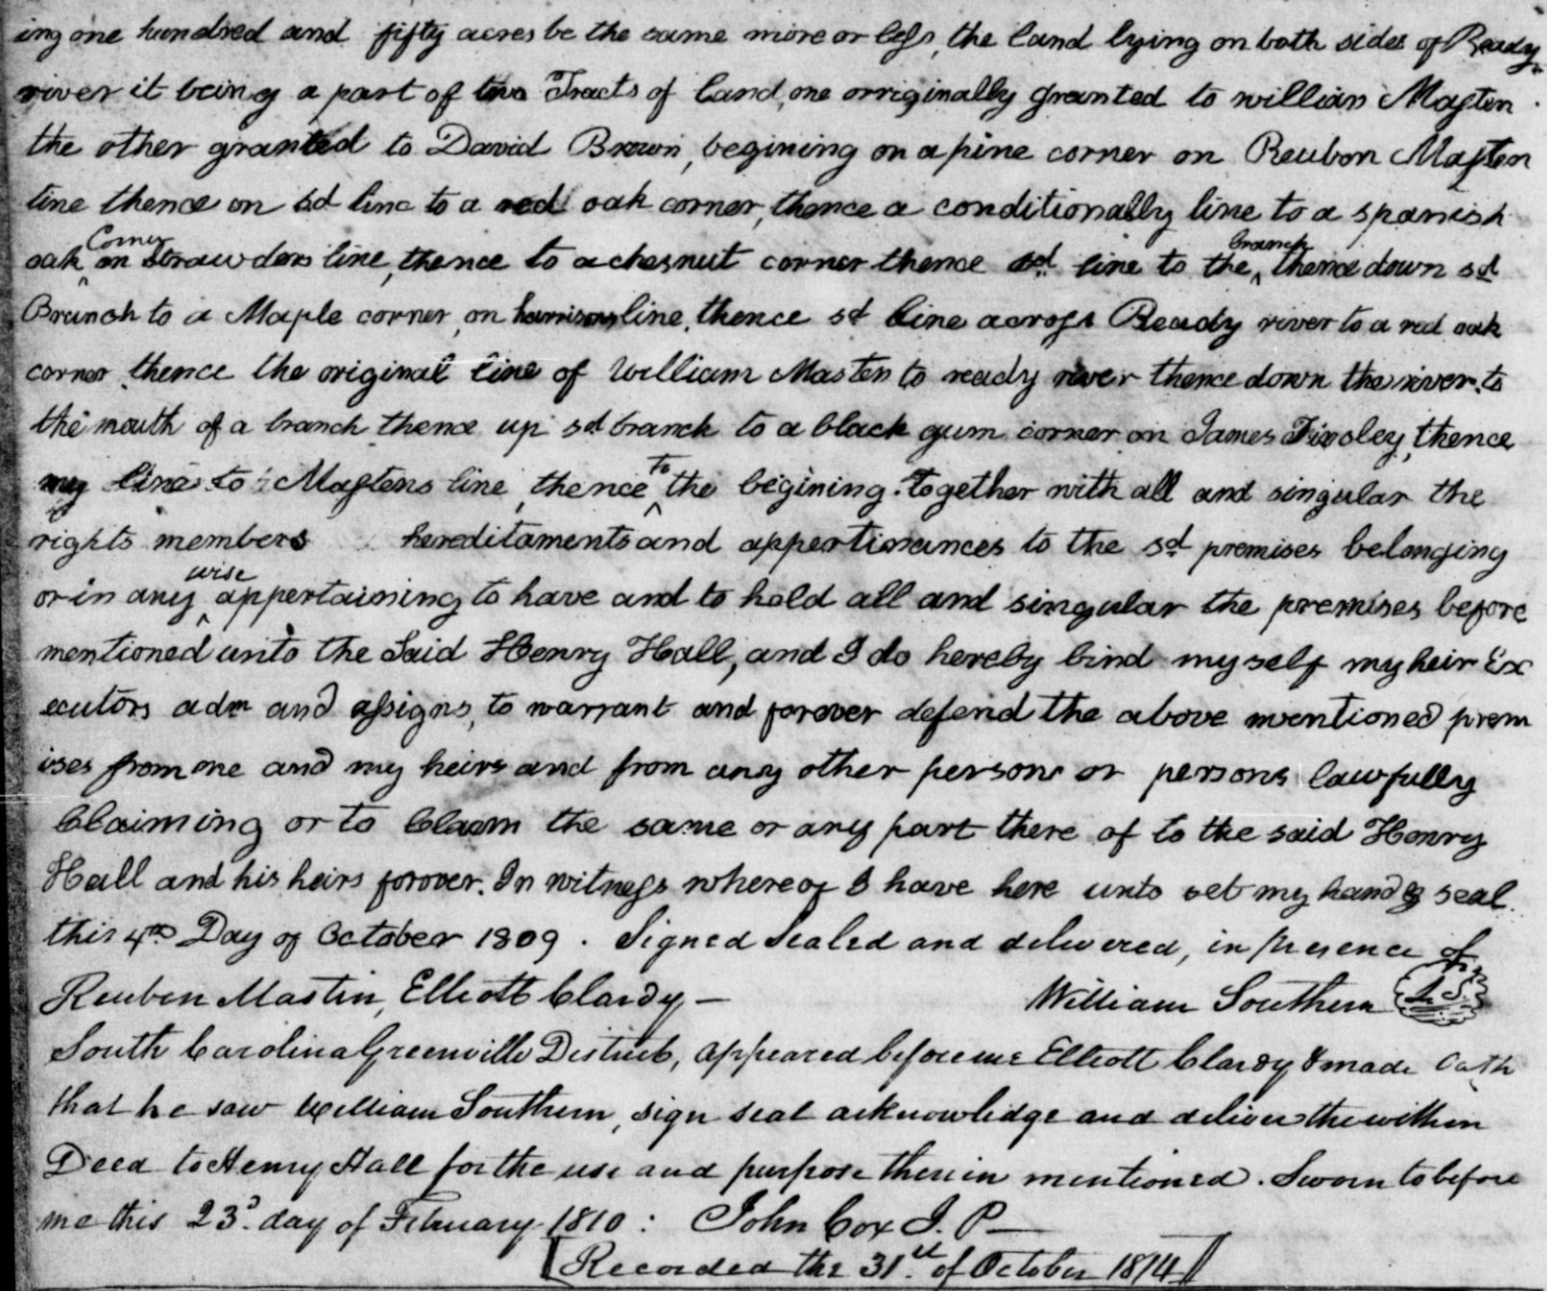 ing one hundred and fifty acres be the same more or less, the land lying on both sides of Ready
river it being a part of two Tracts of land, one orriginally granted to william Masten
the other granted to David Brown, begining on a pine corner on Reubon Masten
line thence on sd line to a red oak corner, thence a conditionally line to a spanish
oak Corner on Strawders line, thence to a chesnut corner thence sd line to the branch thence down sd
Branch to a Maple corner, on harrisons line, thence sd line across Ready river to a red oak
corner thence the original line of William Masten to ready river thence down the river to
the mouth of a branch thence up sd branch to a black gum corner on James Tinsley, thence
my line to Mastens line, thence to the bigining. together with all and singular the
rights members hereditaments and appertinances to the sd premises belonging
or in any wise appertaining to have and to hold all and singular the premises before
mentioned unto the Said Henry Hall, and I do hereby bind myself my heir Ex
ecutors adm and assigns, to warrant and forover defend the above mentioned prem
ises from me and my heirs and from any other persons or persons lawfully
Claiming or to Claim the same or any part there of to the said Henry
Hall and his heirs forover. In witness whereof I have here unto set my hand & seal
this 4th Day of October 1809. Signed Sealed and delivered, in presence of
Reuben Mastin, Elliott Clardy — William Southern L.S.
South Carolina Greenville District, appeared before me Elliott Clardy & made Oath
that he saw William Southern, sign seal acknowledge and deliver the within
Deed to Henry Hall for the use and purpose therein mentioned. Sworn to before
me this 23d day of February 1810: John Cox J. P —
[Recorded the 31st of October 1814]